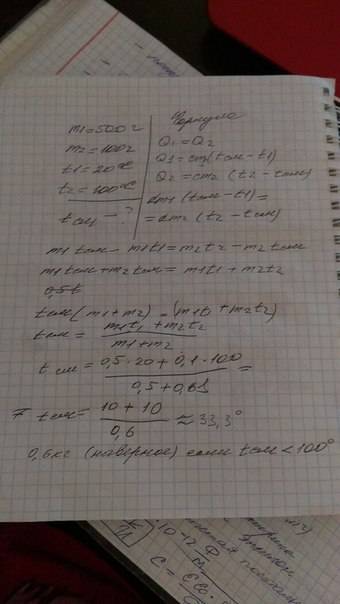 Формула
m1 = 500г
m2 = 100г
t1 = 20°C
t2 = 100°C
tсм - ?
Q1 = Q2
Q1 = cm1(tсм - t1)
Q2 = cm2 (t2 - tсм)
cm1 (tсм - t1) =
= cm2 (t2 - tсм)
m1 tсм - m1t1 = m2t2 - m2 tсм
m1 tсм + m2 tсм = m1t1 + m2t2
tсм (m1 + m2) = (m1t1 + m2t2)
tсм = m1t1 + m2t2 / m1 + m2
tсм = 0,5 · 20 + 0,1 · 100 / 0,5 + 0,1 =
= tсм = 10 + 10 / 0,6 ≈ 33,3°
0,6кг (наверное) если tсм < 100°
10 -12 Ф/м
C = εε0